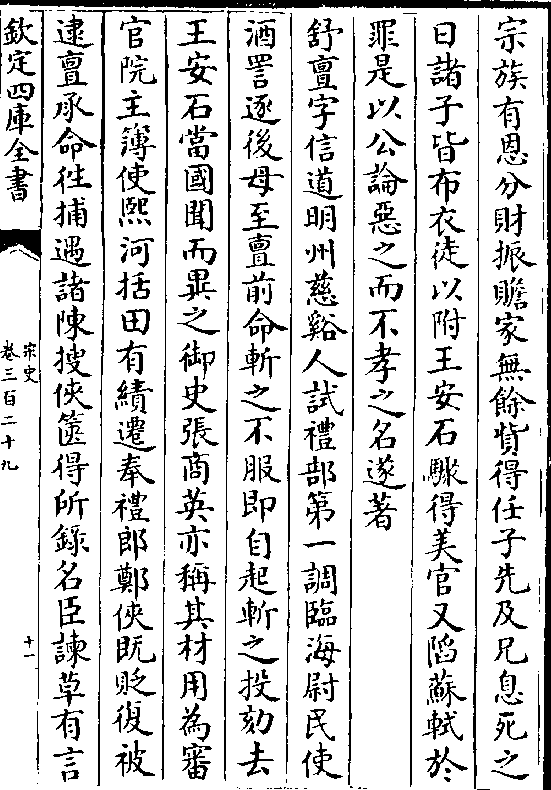 宗族有恩分財振贍家無餘貲得任子先及兄息死之
日諸子皆布衣徒以附王安石驟得美官又陷蘇軾於
罪是以公論惡之而不孝之名遂著
舒亶字信道明州慈谿人試禮部第一調臨海尉民使
酒詈逐後母至亶前命斬之不服即自起斬之投劾去
王安石當國聞而異之御史張商英亦稱其材用為審
官院主簿使熙河括田有績遷奉禮郎鄭俠既貶復被
逮亶承命徃捕遇諸陳搜俠篋得所錄名臣諫草有言
欽定四庫全書
宋史
卷三百二十九
十一